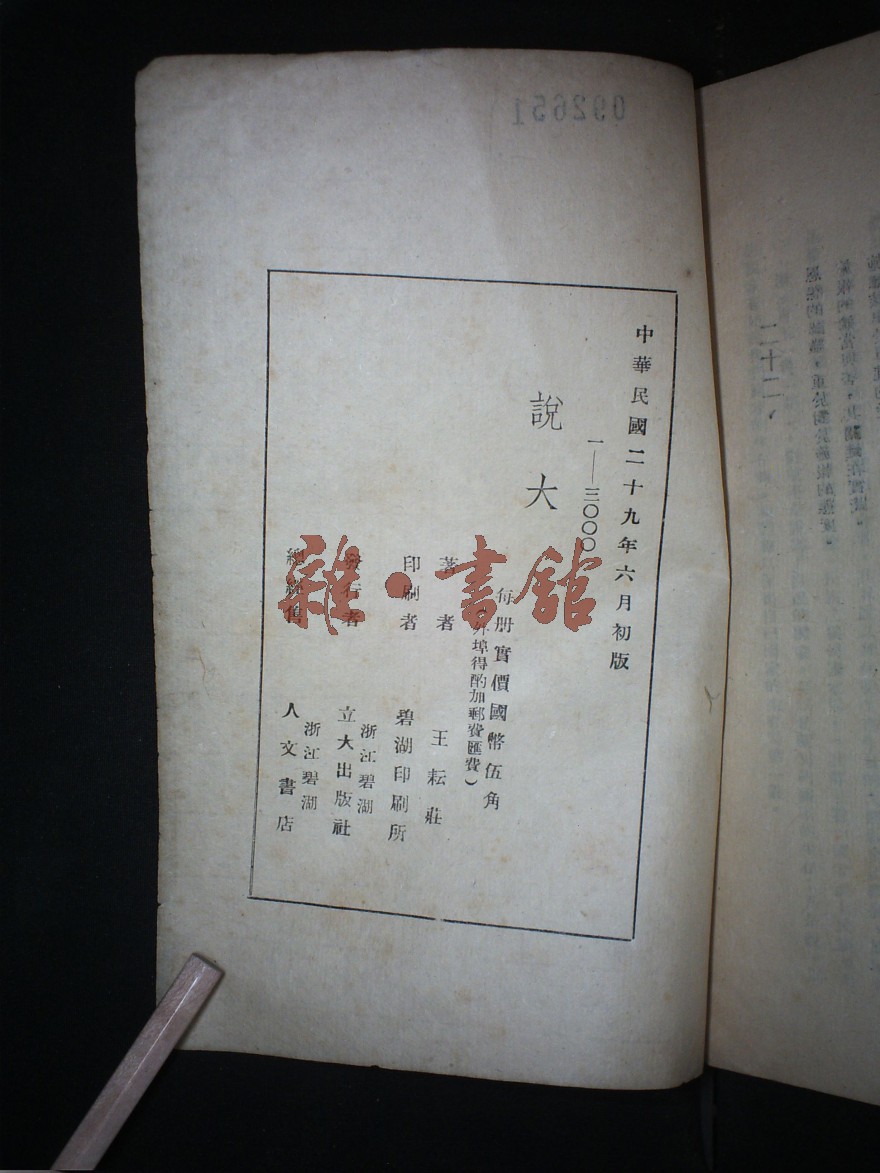 092651
中華民國二十九年六月初版
一——三〇〇〇
說大
每册實價國幣伍角
(外埠得酌加郵費匯費)
著者 王耘莊
印刷者 碧湖印刷所
發行者 浙江碧湖 立大出版社
總經售 浙江碧湖 人文書店
雜·書館
二十二、